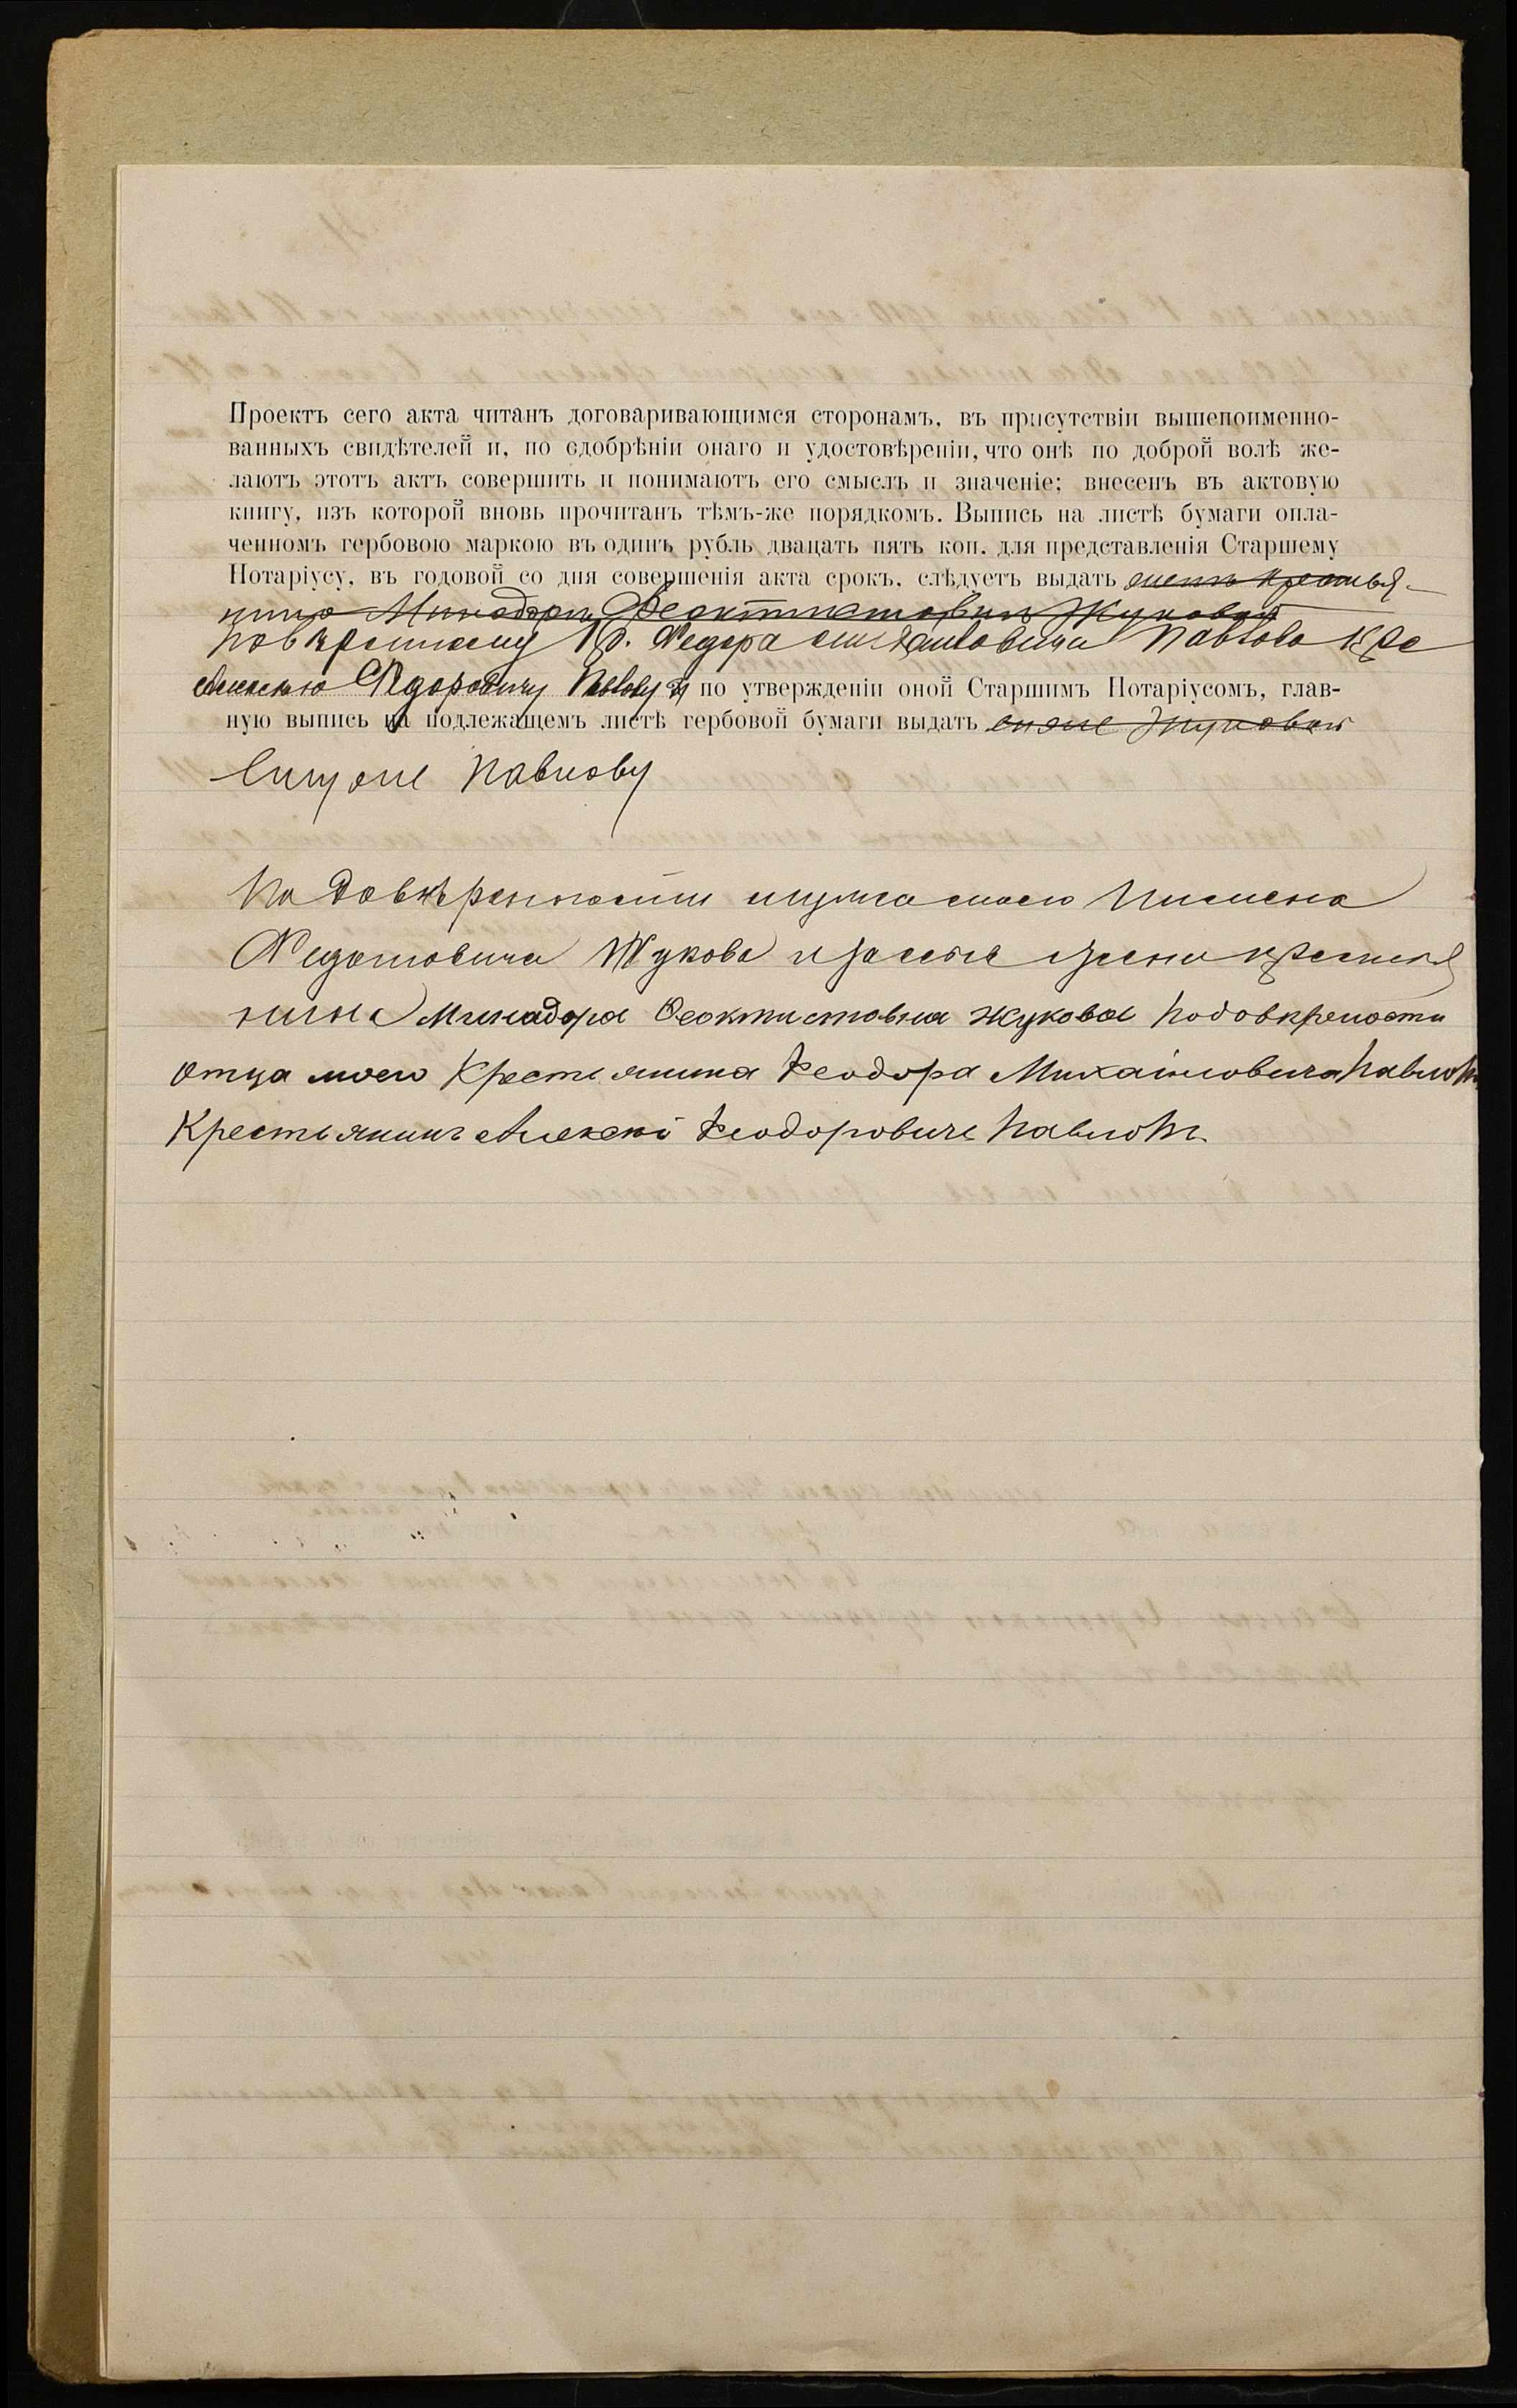 Проектъ сего акта читанъ договаривающимся сторонамъ, въ присутствіи вышепоименно-
ванныхъ свидѣтелей и, по одобрѣніи онаго и удостовѣреніи, что онѣ по доброй волѣ же-
лаютъ этотъ актъ совершить и понимаютъ его смыслъ и значеніе; внесенъ въ актовую
книгу, изъ которой вновь прочитанъ тѣмъ-же порядкомъ. Выпись на листѣ бумаги опла-
ченномъ гербовою маркою въ одинъ рубль двацать пять коп. для представленія Старшему
Нотаріусу, въ годовой со дня совершенія акта срокъ, слѣдуетъ выдать женѣ крестья-
нина Минадорѣ Феоктистовнѣ Жуковой
повѣренному кр. Федора Михайловича Павлова кре
Алексѣю Федоровичу Павлову и по утвержденіи оной Старшимъ Нотаріусомъ, глав-
ную выпись на подлежащемъ листѣ гербовой бумаги выдать ей же Жуковой
Ему же Павлову
По довѣренности мужа моего Пимена
Федотовича Жукова и за себя жена крестья
нина Минадора Ѳеоктистовна Жукова Подовѣрености
отца моего Крестьянина Феодора Михаиловича Павлова
Крестьянинъ Алексѣй Феодоровичь Павловъ